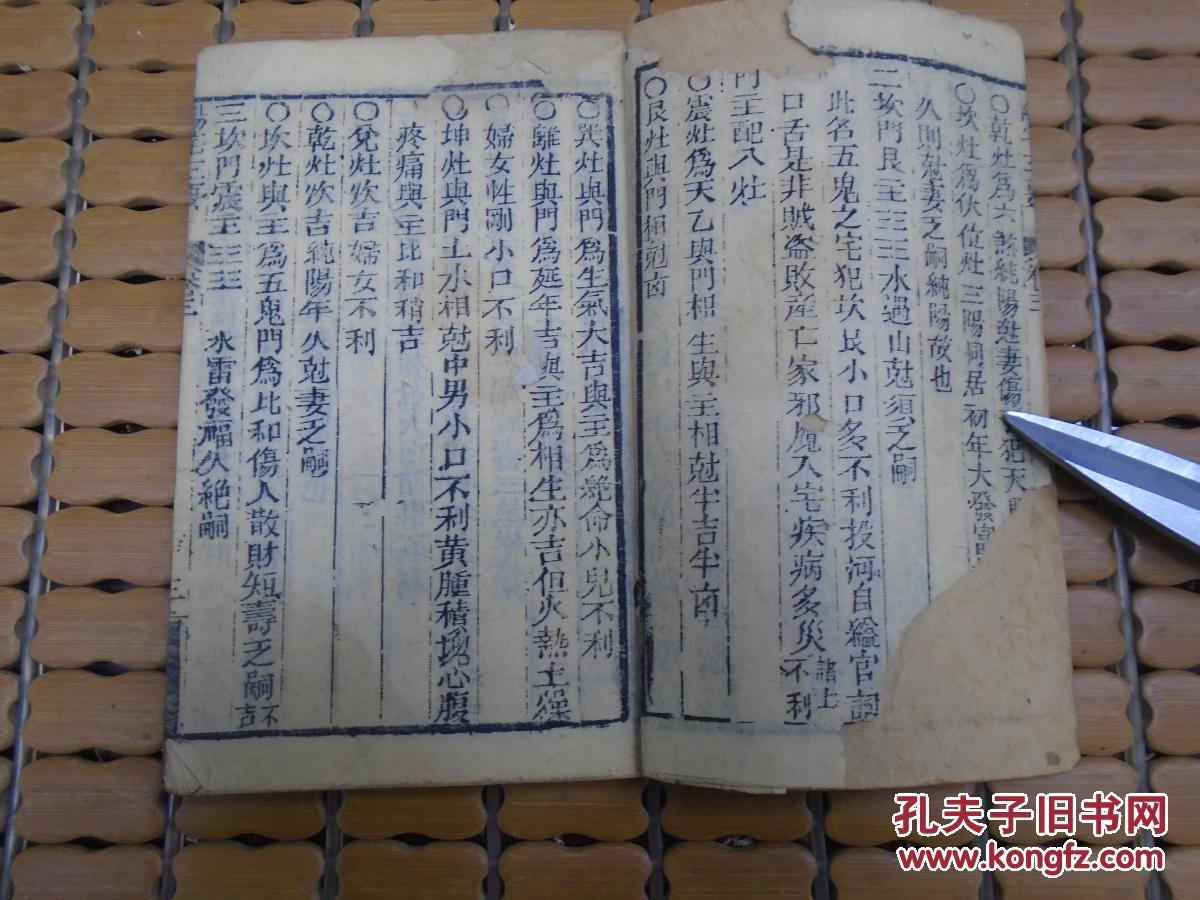 ○乾灶為六煞純陽尅妻傷 犯天
○坎灶為伏位灶三陽同居初年大發富
久則尅妻乏嗣純陽故也
二坎門艮主三三王水遇山尅須乏嗣
此名五鬼之宅犯坎艮小口多不利投河自縊官詞
口舌是非賊盗敗産亡家邪魔入宅疾病多災不利諸士
門主配八灶
○震灶爲天乙與門相生與主相尅半吉半凶
○艮灶與門相尅凶
○巽灶與門爲生氣大吉與主爲絶命小兒不利
○離灶與門爲延年吉與主爲相生亦吉但火熱土燥
婦女性剛小口不利
○坤灶與門土水相尅中男小口不利黄腫積塊心腹
疼痛與主比和稍吉
○兌灶次吉婦女不利
○乾灶次吉純陽年久尅妻乏嗣
○坎灶與主爲五鬼門爲比和傷人散財短壽乏嗣不吉
三坎門震主三三王 水雷發福久絶嗣
孔夫子旧书网
www.kongfz.com